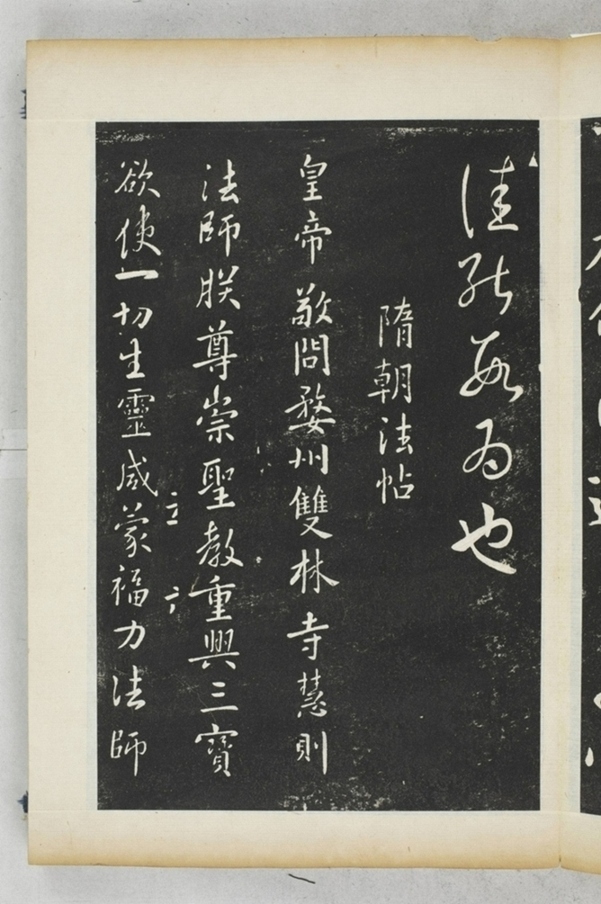 佳
為也
隋朝法帖
皇帝敬問婺州雙林寺慧則
法師朕尊崇聖教重興三寶
欲使一切生靈咸蒙福力法師